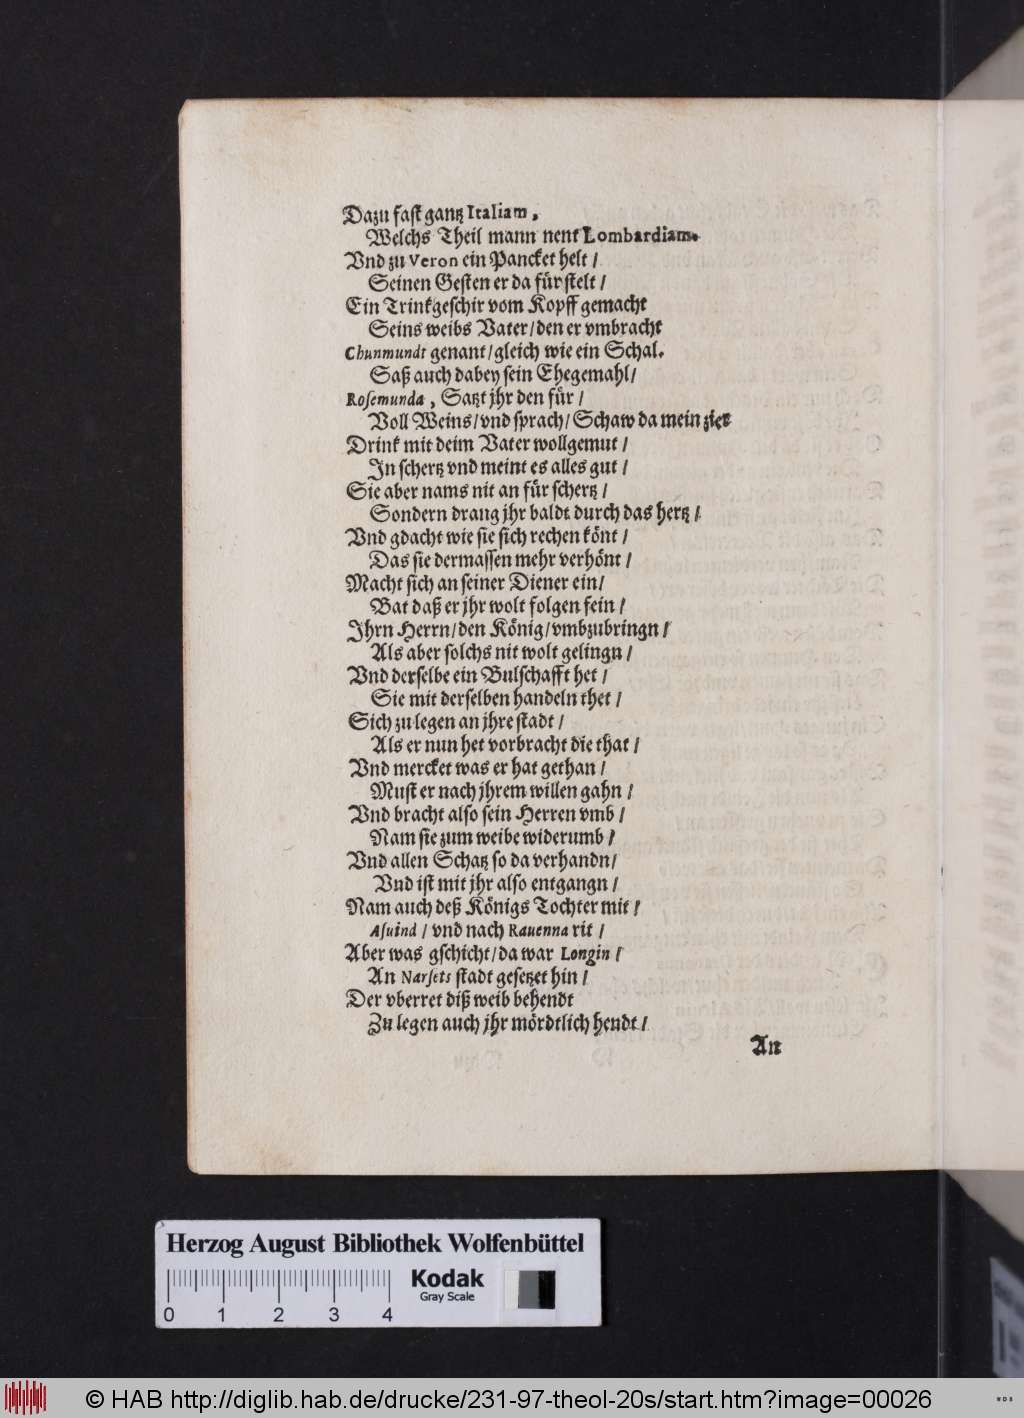 Dazu fast gantz Italiam,
Welchs Theil mann nent Lombardiam.
Vnd zu Veron ein Pancket helt /
Seinen Gesten er da für stelt /
Ein Trinkgeschir vom Kopff gemacht
Seins weibs Vater / den er vmbracht
Chunmundt genant / gleich wie ein Schal.
Saß auch dabey sein Ehegemahl /
Rosemunda, Satzt jhr den für /
Voll Weins / vnd sprach / Schaw da mein zier
Drink mit deim Vater wollgemut /
In schertz vnd meint es alles gut /
Sie aber nams nit an für schertz /
Sondern drang jhr baldt durch das hertz /
Vnd gdacht wie sie sich rechen könt /
Das sie dermassen mehr verhönt /
Macht sich an seiner Diener ein /
Bat daß er jhr wolt folgen fein /
Ihrn Herrn / den König / vmbzubringn /
Als aber solchs nit wolt gelingn /
Vnd derselbe ein Bulschafft het /
Sie mit derselben handeln thet /
Sich zu legen an jhre stadt /
Als er nun het vorbracht die that /
Vnd mercket was er hat gethan /
Must er nach jhrem willen gahn /
Vnd bracht also sein Herren vmb /
Nam sie zum weibe widerumb /
Vnd allen Schatz so da verhandn /
Vnd ist mit jhr also entgangn /
Nam auch deß Königs Tochter mit /
Asuind / vnd nach Rauenna rit /
Aber was gschicht / da war Longin /
An Narsets stadt gesetzet hin /
Der vberret diß weib behendt
Zu legen auch jhr mördtlich hendt /
An
Herzog August Bibliothek Wolfenbüttel
Kodak
Gray Scale
0 1 2 3 4
© HAB http://diglib.hab.de/drucke/231-97-theol-20s/start.htm?image=00026